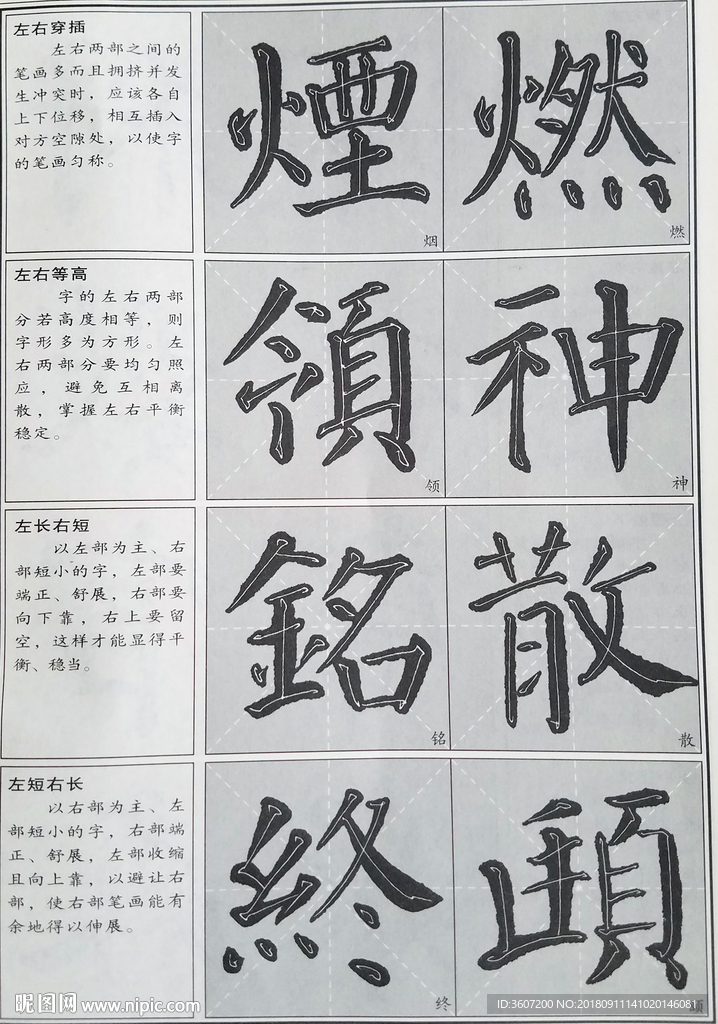 左右穿插
左右两部之间的
笔画多而且拥挤并发
生冲突时，应该各自
上下位移，相互插入
对方空隙处，以使字
的笔画匀称。
煙 燃
烟 燃
左右等高
字的左右两部
分若高度相等，则
字形多为方形。左
右两部分要均匀照
应，避免互相离
散，掌握左右平衡
稳定。
領 神
领 神
左长右短
以左部为主、右
部短小的字，左部要
端正、舒展，右部要
向下靠，右上要留
空，这样才能显得平
衡、稳当。
銘 散
铭 散
左短右长
以右部为主、左
部短小的字，右部端
正、舒展，左部收缩
且向上靠，以避让右
部，使右部笔画能有
余地得以伸展。
終
终
昵图网 www.nipic.com
ID:3607200 NO:20180911141020146081